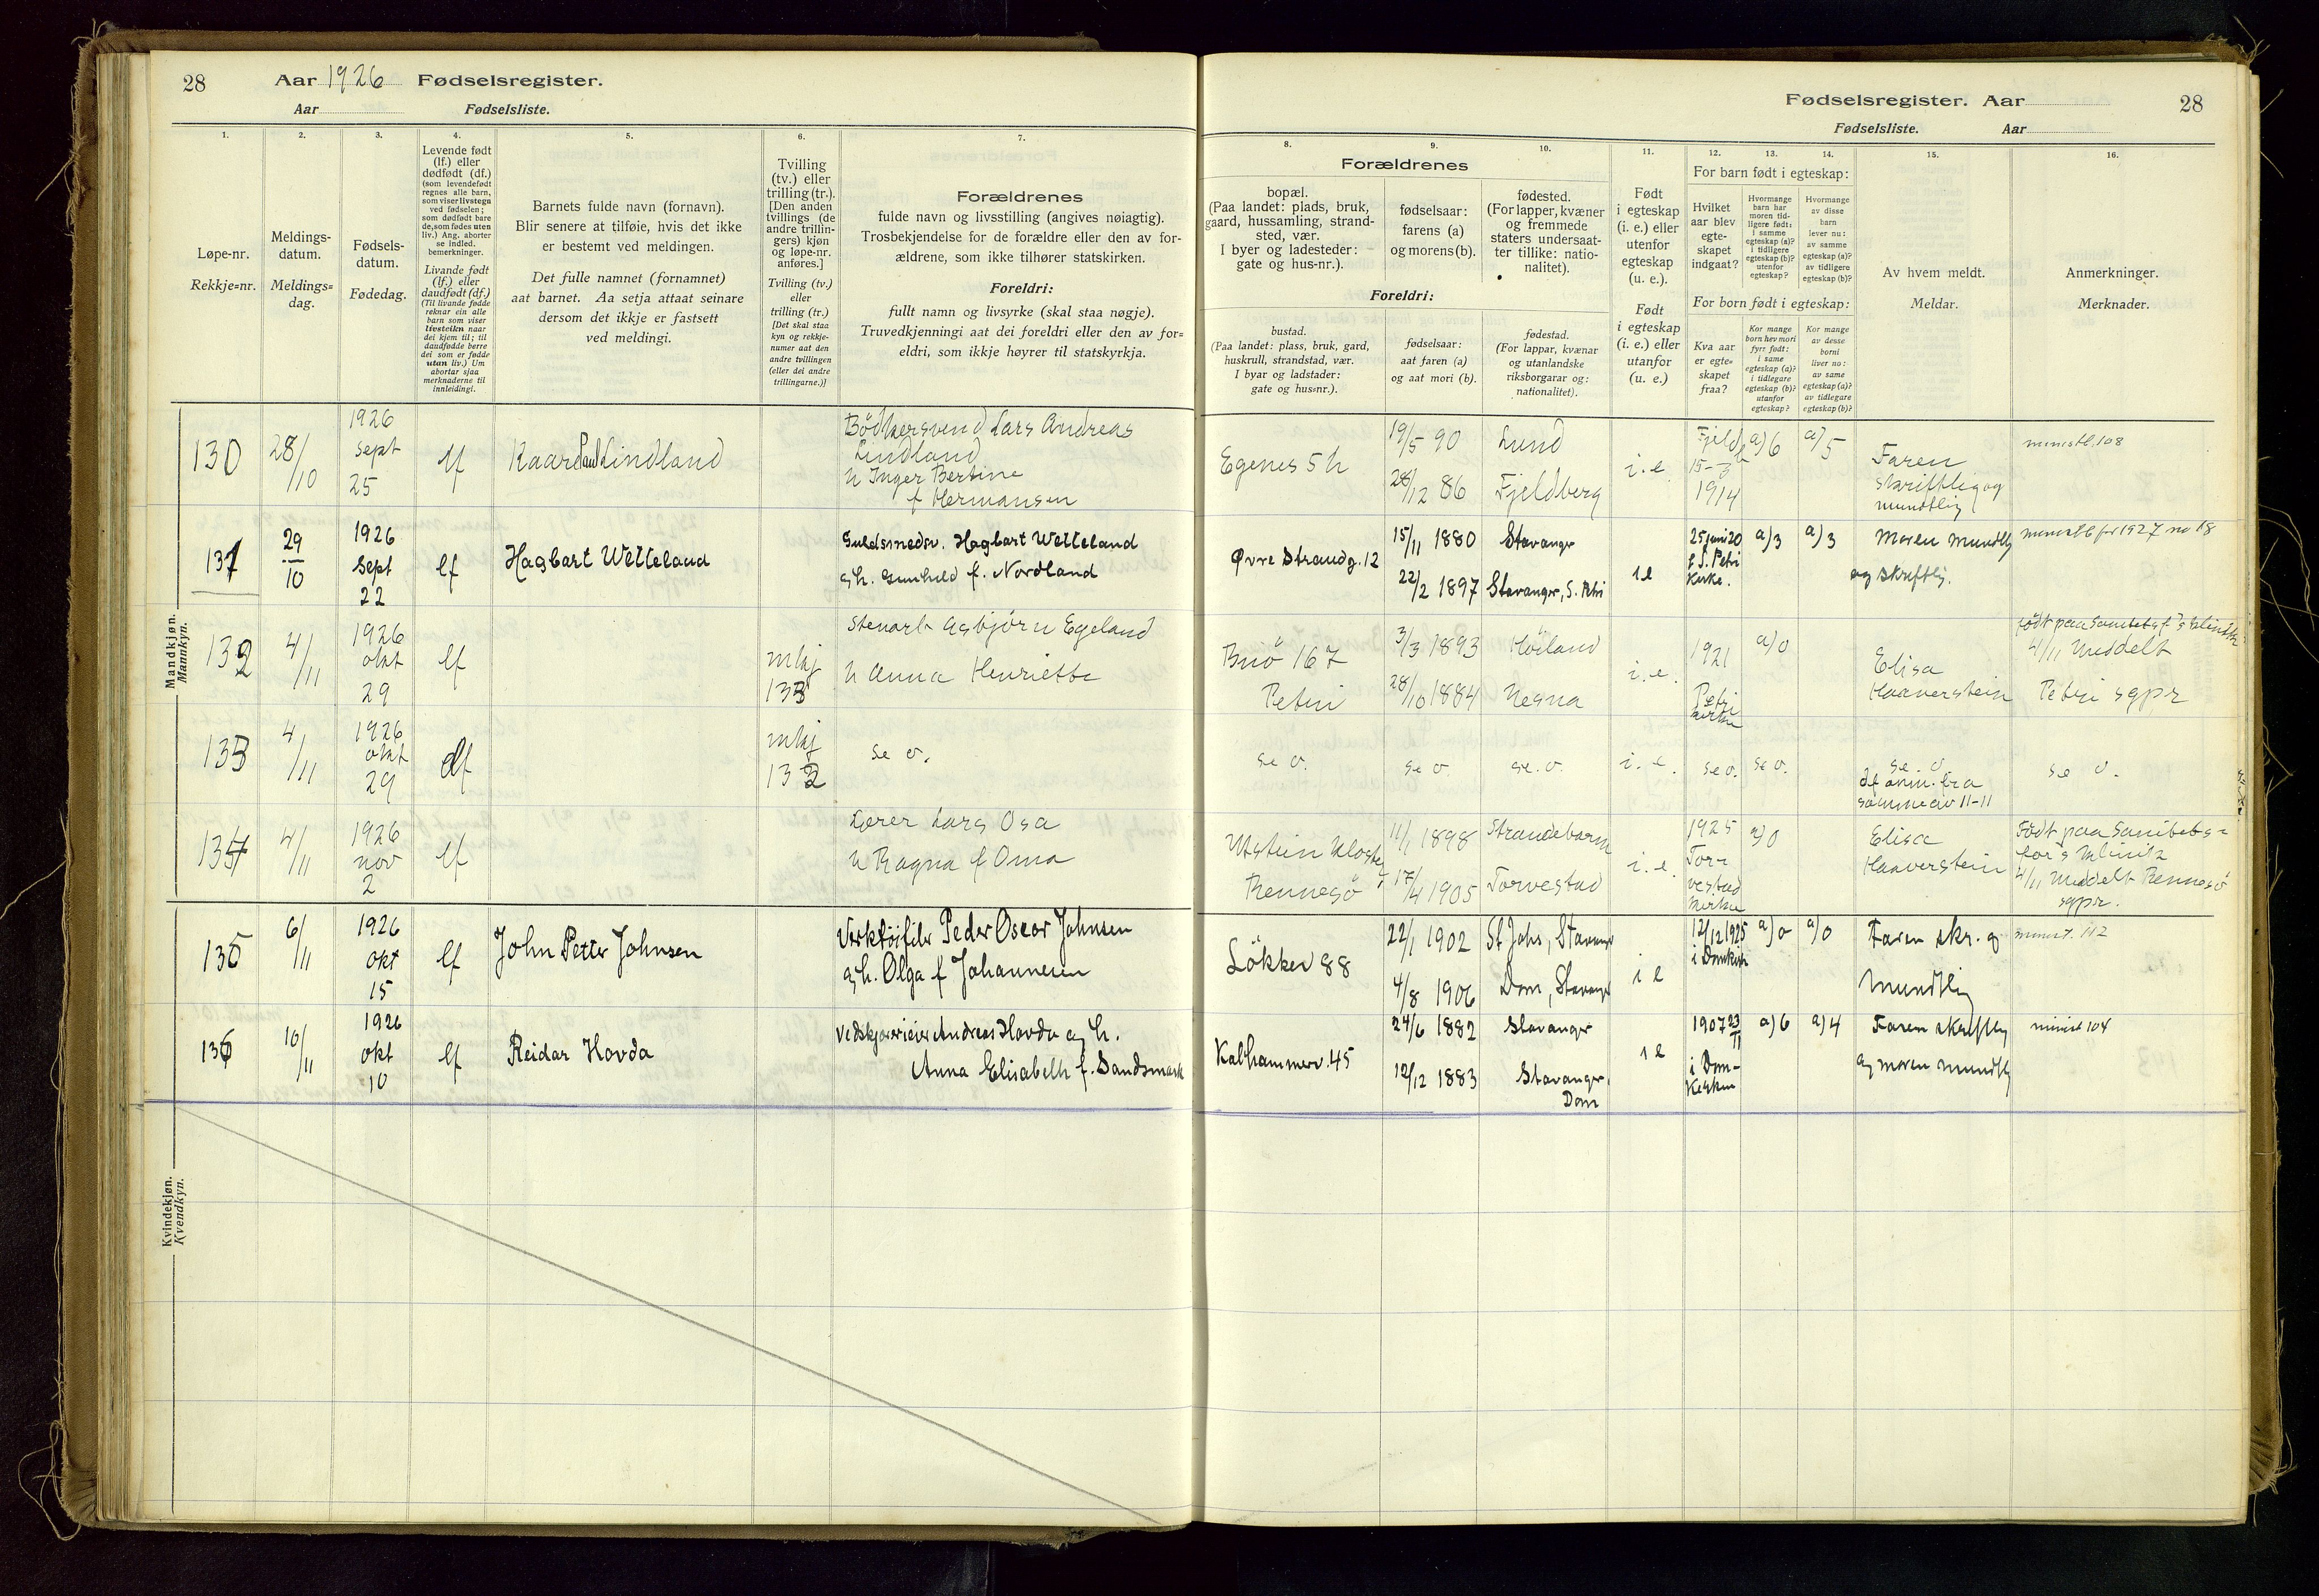 28 Aar 1926 Fødselsregister.
Aar Fødselsliste.
1. 2. 3. 4. 5. 6. 7.
Løpe-nr.
Rekkje-nr.
Meldings-
datum.
Meldings-
dag.
Fødsels-
datum.
Fødedag.
Levende født
(lf.) eller
dødfødt (df.)
(som levendefødt
regnes alle barn,
som viser livstegn
ved fødselen;
som dødfødt bare
de, som fødes uten
liv.) Ang. aborter
se indled.
bemerkninger.
Livande født
(lf.) eller
daudfødt (df.)
(Til livande fødde
reknar ein alle
barn som viser
livsteikn naar
dei kjem til; til
daudfødde berre
dei som er fødde
utan liv.) Um
abortar sjaa
merknaderne til
innleidingi.
Barnets fulde navn (fornavn).
Blir senere at tilføie, hvis det ikke
er bestemt ved meldingen.
Det fulle namnet (fornamnet)
aat barnet. Aa setja attaat seinare
dersom det ikkje er fastsett
ved meldingi.
Tvilling
(tv.) eller
trilling (tr.).
[Den anden
tvillings (de
andre trillin-
gers) kjøn
og løpe-nr.
anføres.]
Tvilling (tv.)
eller
trilling (tr.)
[Det skal staa
kyn og rekkje-
numer aat den
andre tvillingen
(eller dei andre
trillingarne.)]
Forældrenes
fulde navn og livsstilling (angives nøiagtig).
Trosbekjendelse for de forældre eller den av for-
ældrene, som ikke tilhører statskirken.
Foreldri:
fullt namn og livsyrke (skal staa nøgje).
Truvedkjenningi aat dei foreldri eller den av for-
eldri, som ikkje høyrer til statskyrkja.
Mandkjøn.
Mannkyn.
130 28/10 1926 sept 25 lf Kaare Paul Lindland
Bödkersvend Lars Andreas
Lindland
h Inger Bertine
f Hermansen
131 29/10 1926 Sept 22 lf Hagbart Wetteland
Guldsmedsv. Hagbart Wetteland
og h. Gunhild f. Nordland
132 4/11 1926 okt 29 lf mkj 133
Stenarb Asbjørn Egeland
h Anna Henriette
133 4/11 1926 okt 29 df mkj 132 se o.
134 4/11 1926 nov 2 lf
Lærer Lars Osa
h Ragna f Oma
135 6/11 1926 Okt 15 lf John Petter Johnsen
Verktøifiler Peder Oscar Johnsen
og h. Olga f Johannesen
136 10/11 1926 Okt 10 lf Reidar Hovda
Vedskjæreieier Andreas Hovda og h.
Anna Elisabeth f. Sandsmark
Kvindekjøn.
Kvendkyn.
Fødselsregister. Aar 28
Fødselsliste. Aar
8. 9. 10. 11. 12. 13. 14. 15. 16.
Forældrenes
bopæl.
(Paa landet: plads, bruk,
gaard, hussamling, strand-
sted, vær.
I byer og ladesteder:
gate og hus-nr.).
fødselsaar:
farens (a)
og morens (b).
fødested.
(For lapper, kvæner
og fremmede
staters undersaat-
ter tillike: natio-
nalitet).
Foreldri:
bustad.
(Paa landet: plass, bruk, gard,
huskrull, strandstad, vær.
I byar og ladstader:
gate og hus-nr.).
fødselsaar:
aat faren (a)
og aat mori (b).
fødestad.
(For lappar, kvænar
og utanlandske
riksborgarar og:
nationalitet).
Født
i egteskap
(i. e.) eller
utenfor
egteskap
(u. e.).
Født
i egteskap
(i. e.) eller
utanfor
(u. e.)
For barn født i egteskap:
Hvilket
aar blev
egte-
skapet
indgaat?
Hvormange
barn har
moren tid-
ligere født:
i samme
egteskap (a)?
i tidligere
egteskap (b)?
utenfor
egteskap?
Hvormange
av disse
barn
lever nu:
av samme
egteskap (a)?
av tidligere
egteskap (b)?
For born født i egteskap:
Kva aar
er egte-
skapet
fraa?
Kor mange
born hev mori
fyrr født:
i same
egteskap (a)?
i tidlegare
egteskap (b)?
utanfor
egteskap?
Kor mange
av desse
borni
liver no:
av same
egteskap (a)?
av tidlegare
egteskap (b)?
Av hvem meldt.
Meldar.
Anmerkninger.
Merknader.
Egenes 5 h 19/5 90 Lund i.e. a) 6 a) 5
28/12 86 Fjeldberg 1914
Faren
skriftlig og
mundtlig
ministl. 108
Øvre Strandg. 12 15/11 1880 Stavanger i e 25 juni 20 a) 3 a) 3
22/2 1897 Stavanger, S. Petri
f S. Petri
Kirke.
Moren mundtlig
og skriftlig.
ministl for 1927 no 18
Buö 167 3/3 1893 Höiland i.e. 1921 a) 0
Petri 28/10 1884 Nesna Petri
kirke
Elisa
Haaverstein
født paa Sanitetsf's klinikk
4/11 Meddelt
Petri sgpr
se o. se o se. o. i. e. se o. se o. se o
df anm. fra
samme av 11-11
se o.
Utstein Kloster 11/1 1898 Strandebarm i.e. 1925 a) 0
Rennesö 17/4 1905 Torvestad
Tor-
vestad
kirke
Elisa
Haaverstein
Født paa Sanitets-
for's klinik
4/11 Meddelt Rennesö
sgpr.
Løkkev 88 22/1 1902 St Johs, Stavanger i e 12/12 1925 a) 0 a) 0
4/8 1906 Dom, Stavanger
i Domkirk
Faren skr. og
mundtlig
minist. 112
Kalhammerv. 45 24/6 1882 Stavanger i e 1907 23/11 a) 6 a) 4
12/12 1883 Stavanger
Dom
i Dom-
kirken
Faren skriftlig
og moren mundtlig
minist 104